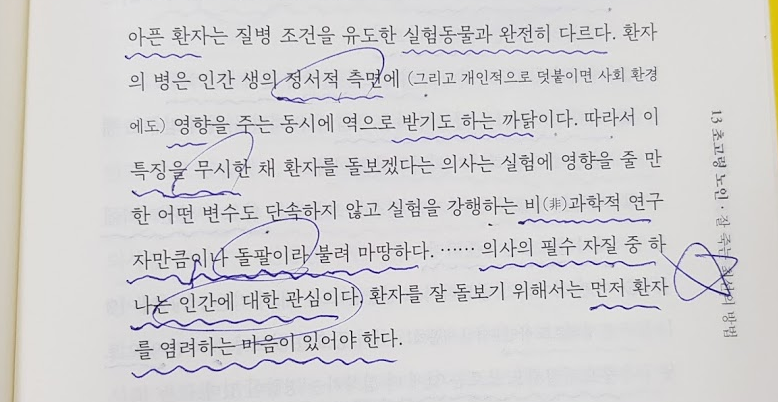 아픈 환자는 질병 조건을 유도한 실험동물과 완전히 다르다. 환자
의 병은 인간 생의 정서적 측면에 (그리고 개인적으로 덧붙이면 사회 환경
에도) 영향을 주는 동시에 역으로 받기도 하는 까닭이다. 따라서 이
특징을 무시한 채 환자를 돌보겠다는 의사는 실험에 영향을 줄 만
한 어떤 변수도 단속하지 않고 실험을 강행하는 비(非)과학적 연구
자만큼이나 돌팔이라 불려 마땅하다. …… 의사의 필수 자질 중 하
나는 인간에 대한 관심이다. 환자를 잘 돌보기 위해서는 먼저 환자
를 염려하는 마음이 있어야 한다.
13 초고령 노인 · 잘 죽는 최선의 방법